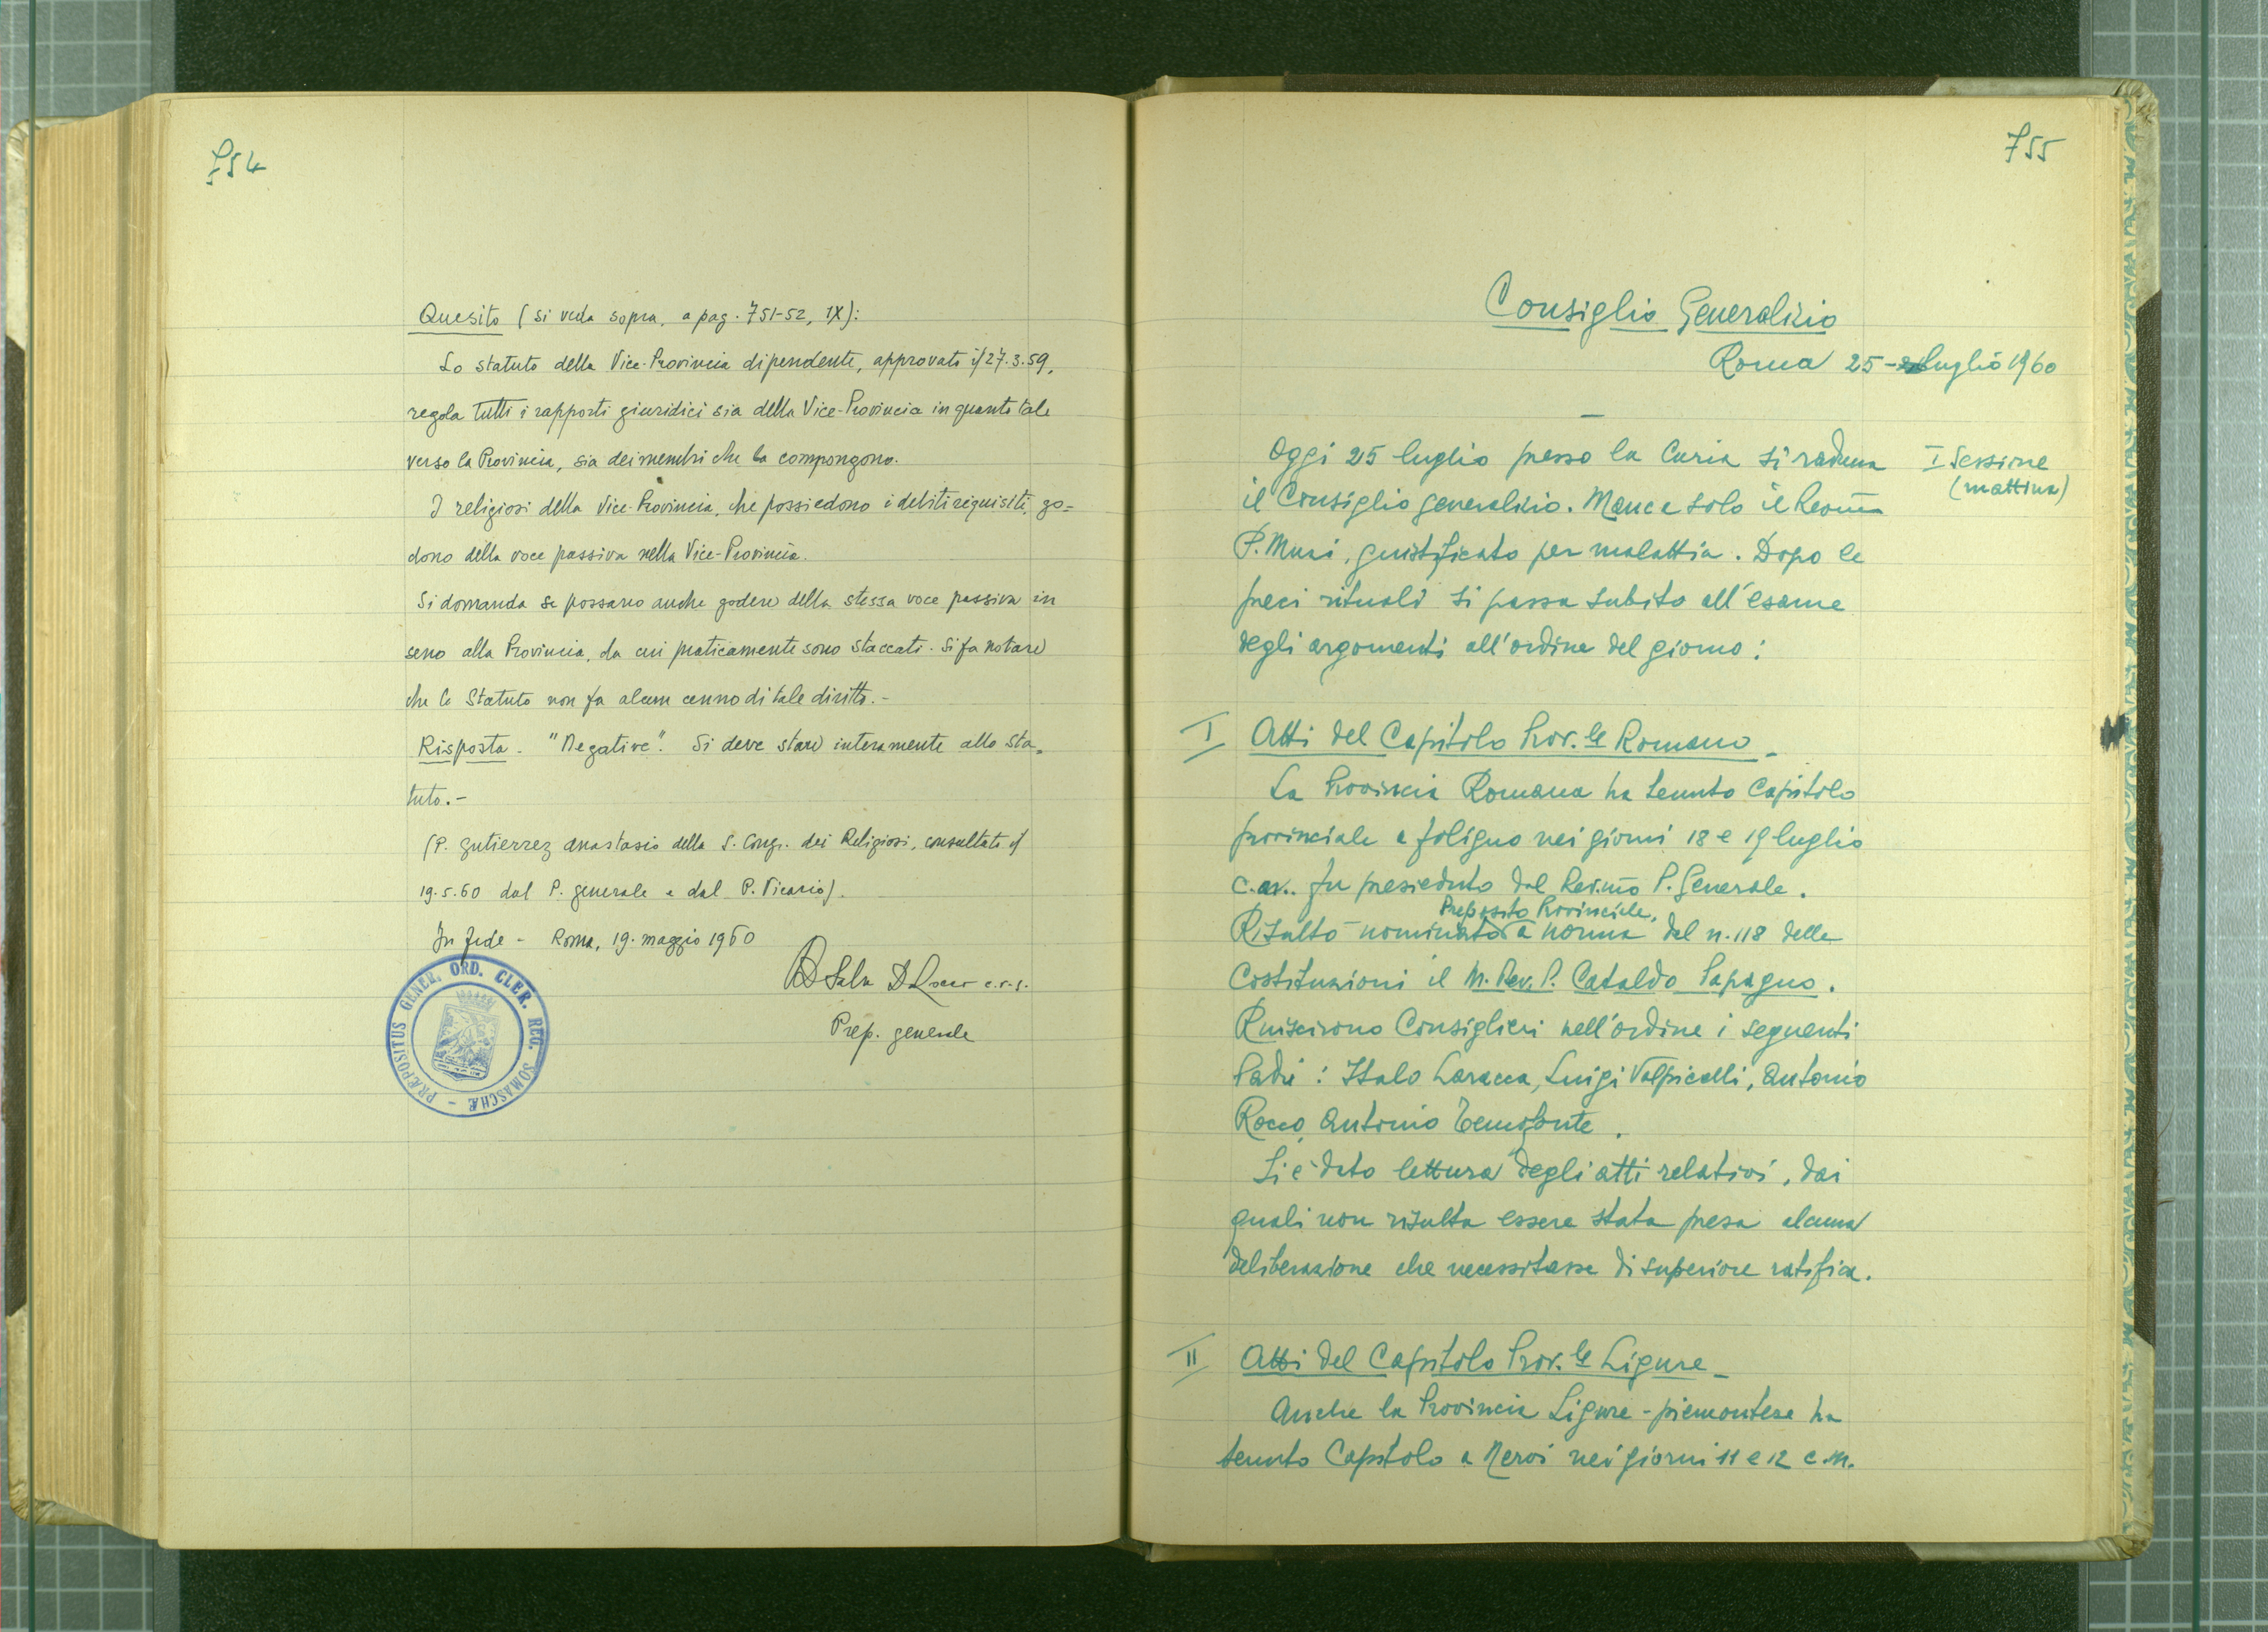 754
Quesito (si veda sopra, a pag. 751-52, IX):
Lo statuto della Vice-Provincia dipendente, approvato il 27.3.59,
regola tutti i rapporti giuridici sia della Vice-Provincia in quanto tale
verso la Provincia, sia dei membri che la compongono.
I religiosi della Vice-Provincia, che possiedono i debiti requisiti, go=
dono della voce passiva nella Vice-Provincia.
Si domanda se possano anche godere della stessa voce passiva in
seno alla Provincia, da cui praticamente sono staccati. Si fa notare
che lo Statuto non fa alcun cenno di tale diritto.-
Risposta. "Negative". Si deve stare interamente allo Sta=
tuto.-
(P. Gutierrez Anastasio della S. Cong. dei Religiosi, consultato il
19.5.60 dal P. generale e dal P. Vicario).
In fede - Roma, 19. maggio 1960
c.r.s.
Prep. generale
PRÆPOSITUS GENER. ORD. CLER. REG. SOMASCHÆ -
755
Consiglio Generalizio
Roma 25 - luglio 1960
I Sessione
(mattina)
Oggi 25 luglio presso la Curia si raduna
il Consiglio generalizio. Manca solo il Rev.mo
P. Muzi, giustificato per malattia. Dopo le
preci rituali si passa subito all'esame
degli argomenti all'ordine del giorno:
I Atti del Capitolo Prov.le Romano -
La Provincia Romana ha tenuto Capitolo
provinciale a Foligno nei giorni 18 e 19 luglio
c.a.. Fu presieduto dal Rev.mo P. Generale.
Preposito Provinciale,
Risultò nominato a norma del n. 118 delle
Costituzioni il M. Rev. P. Cataldo Papagno.
Riuscirono Consiglieri nell'ordine i seguenti
Padri: Italo Laracca, Luigi Volpicelli, Antonio
Rocco, Antonio Temofonte.
Si è dato lettura degli atti relativi, dai
quali non risulta essere stata presa alcuna
deliberazione che necessitasse di superiore ratifica.
II Atti del Capitolo Prov.le Ligure -
Anche la Provincia Ligure-piemontese ha
tenuto Capitolo a Nervi nei giorni 11 e 12 c.m.